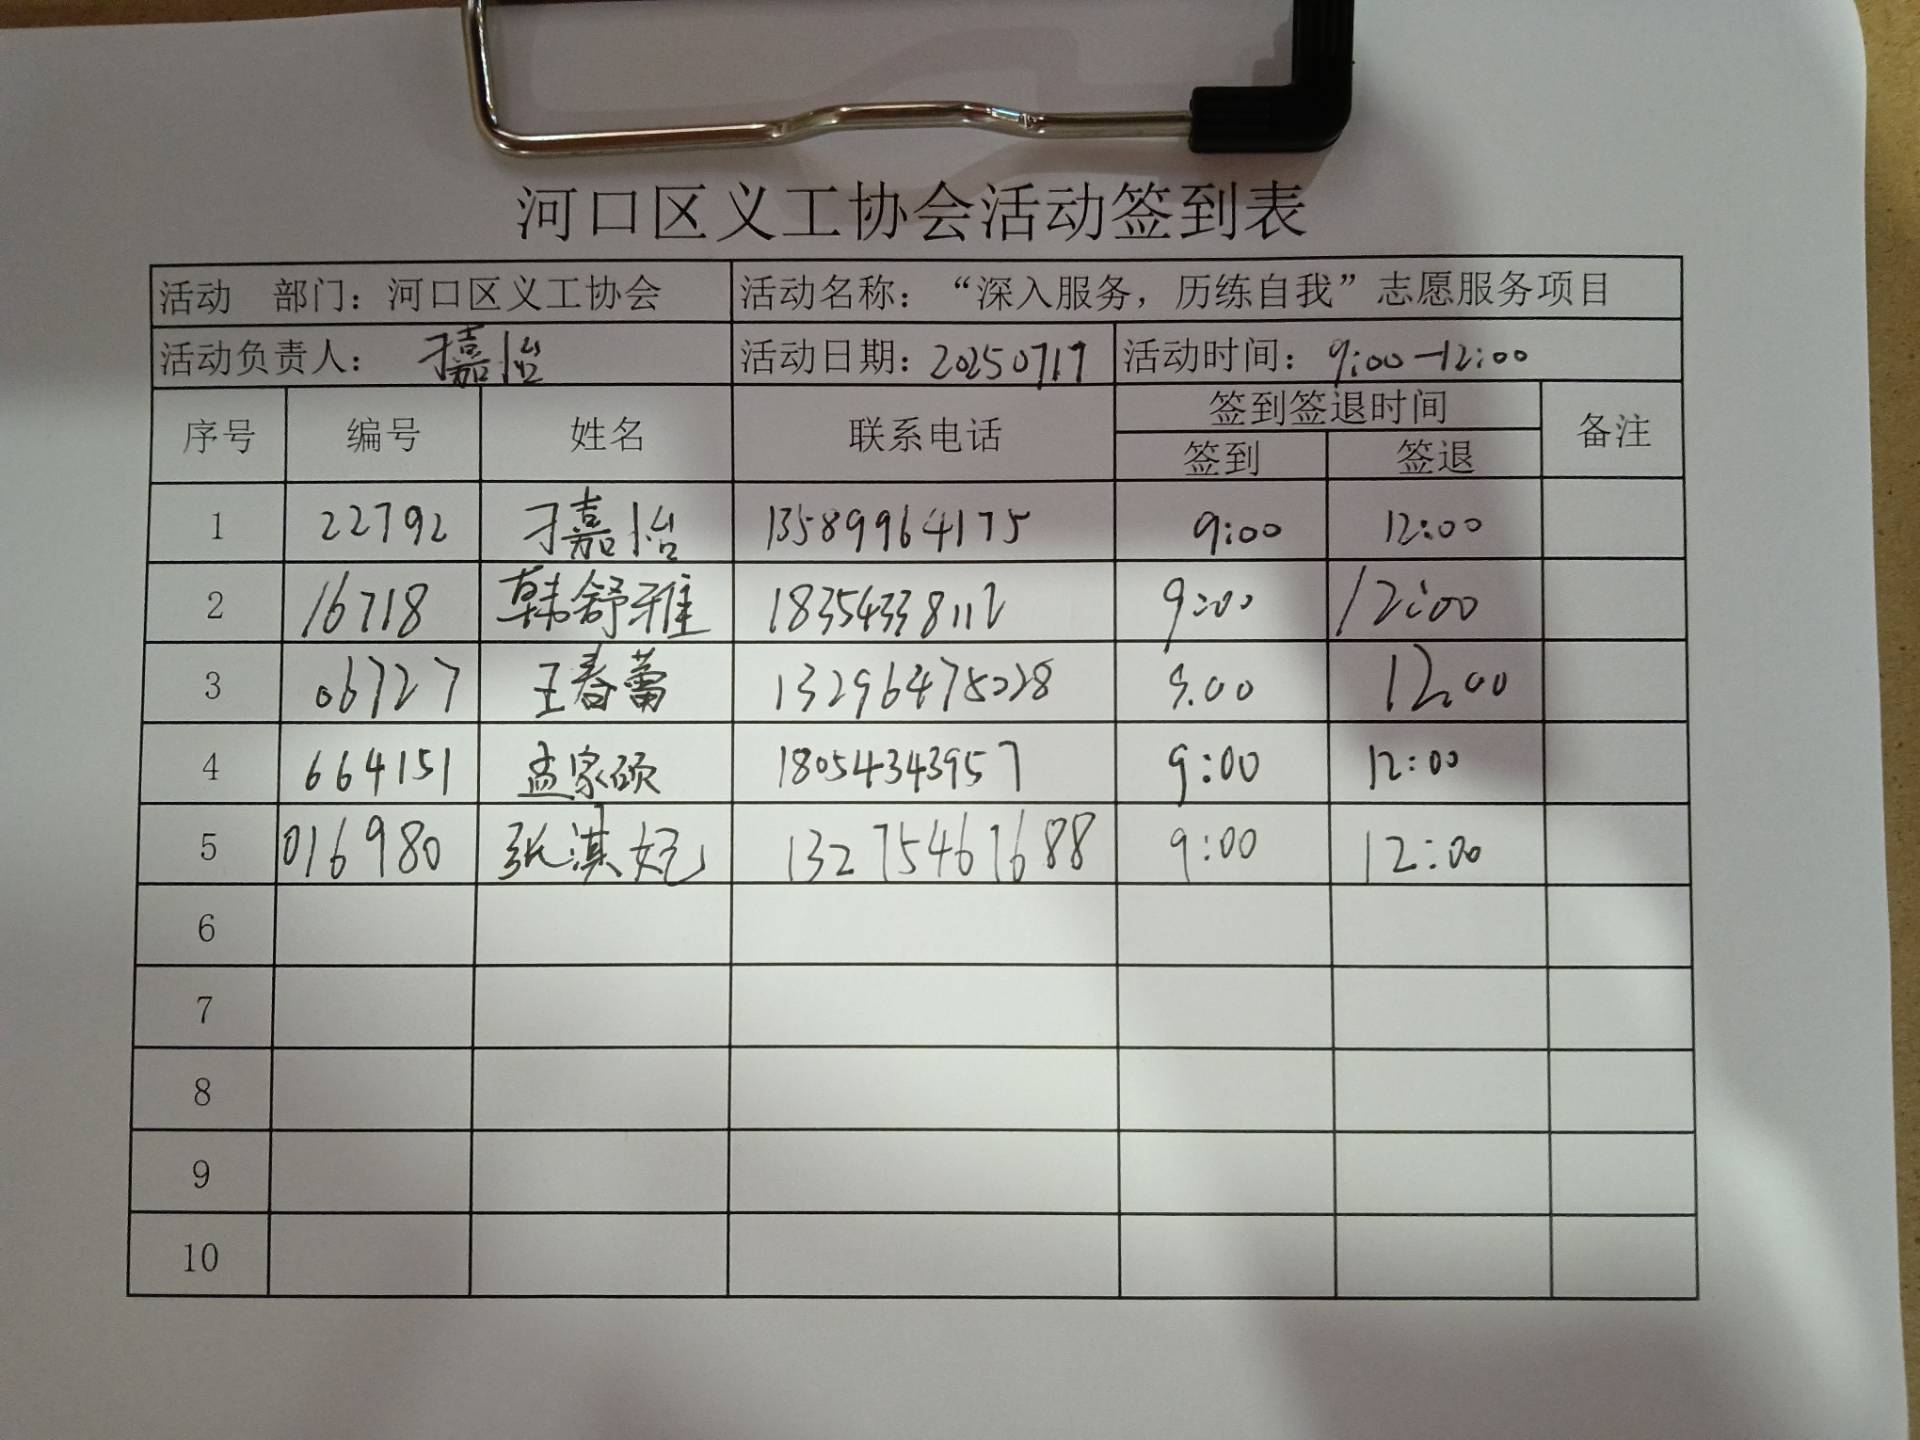 河口区义工协会活动签到表
活动 部门：河口区义工协会 活动名称：“深入服务，历练自我”志愿服务项目
活动负责人：刁嘉怡 活动日期：20250717 活动时间：9:00-12:00
序号 编号 姓名 联系电话 签到签退时间 备注
签到 签退
1 22792 刁嘉怡 13589964175 9:00 12:00
2 16718 韩舒雅 18354338112 9:00 12:00
3 06727 王春蕾 13296475028 9.00 12.00
4 664151 孟家硕 18054343957 9:00 12:00
5 016980 张淇妃 13275467688 9:00 12:00
6
7
8
9
10